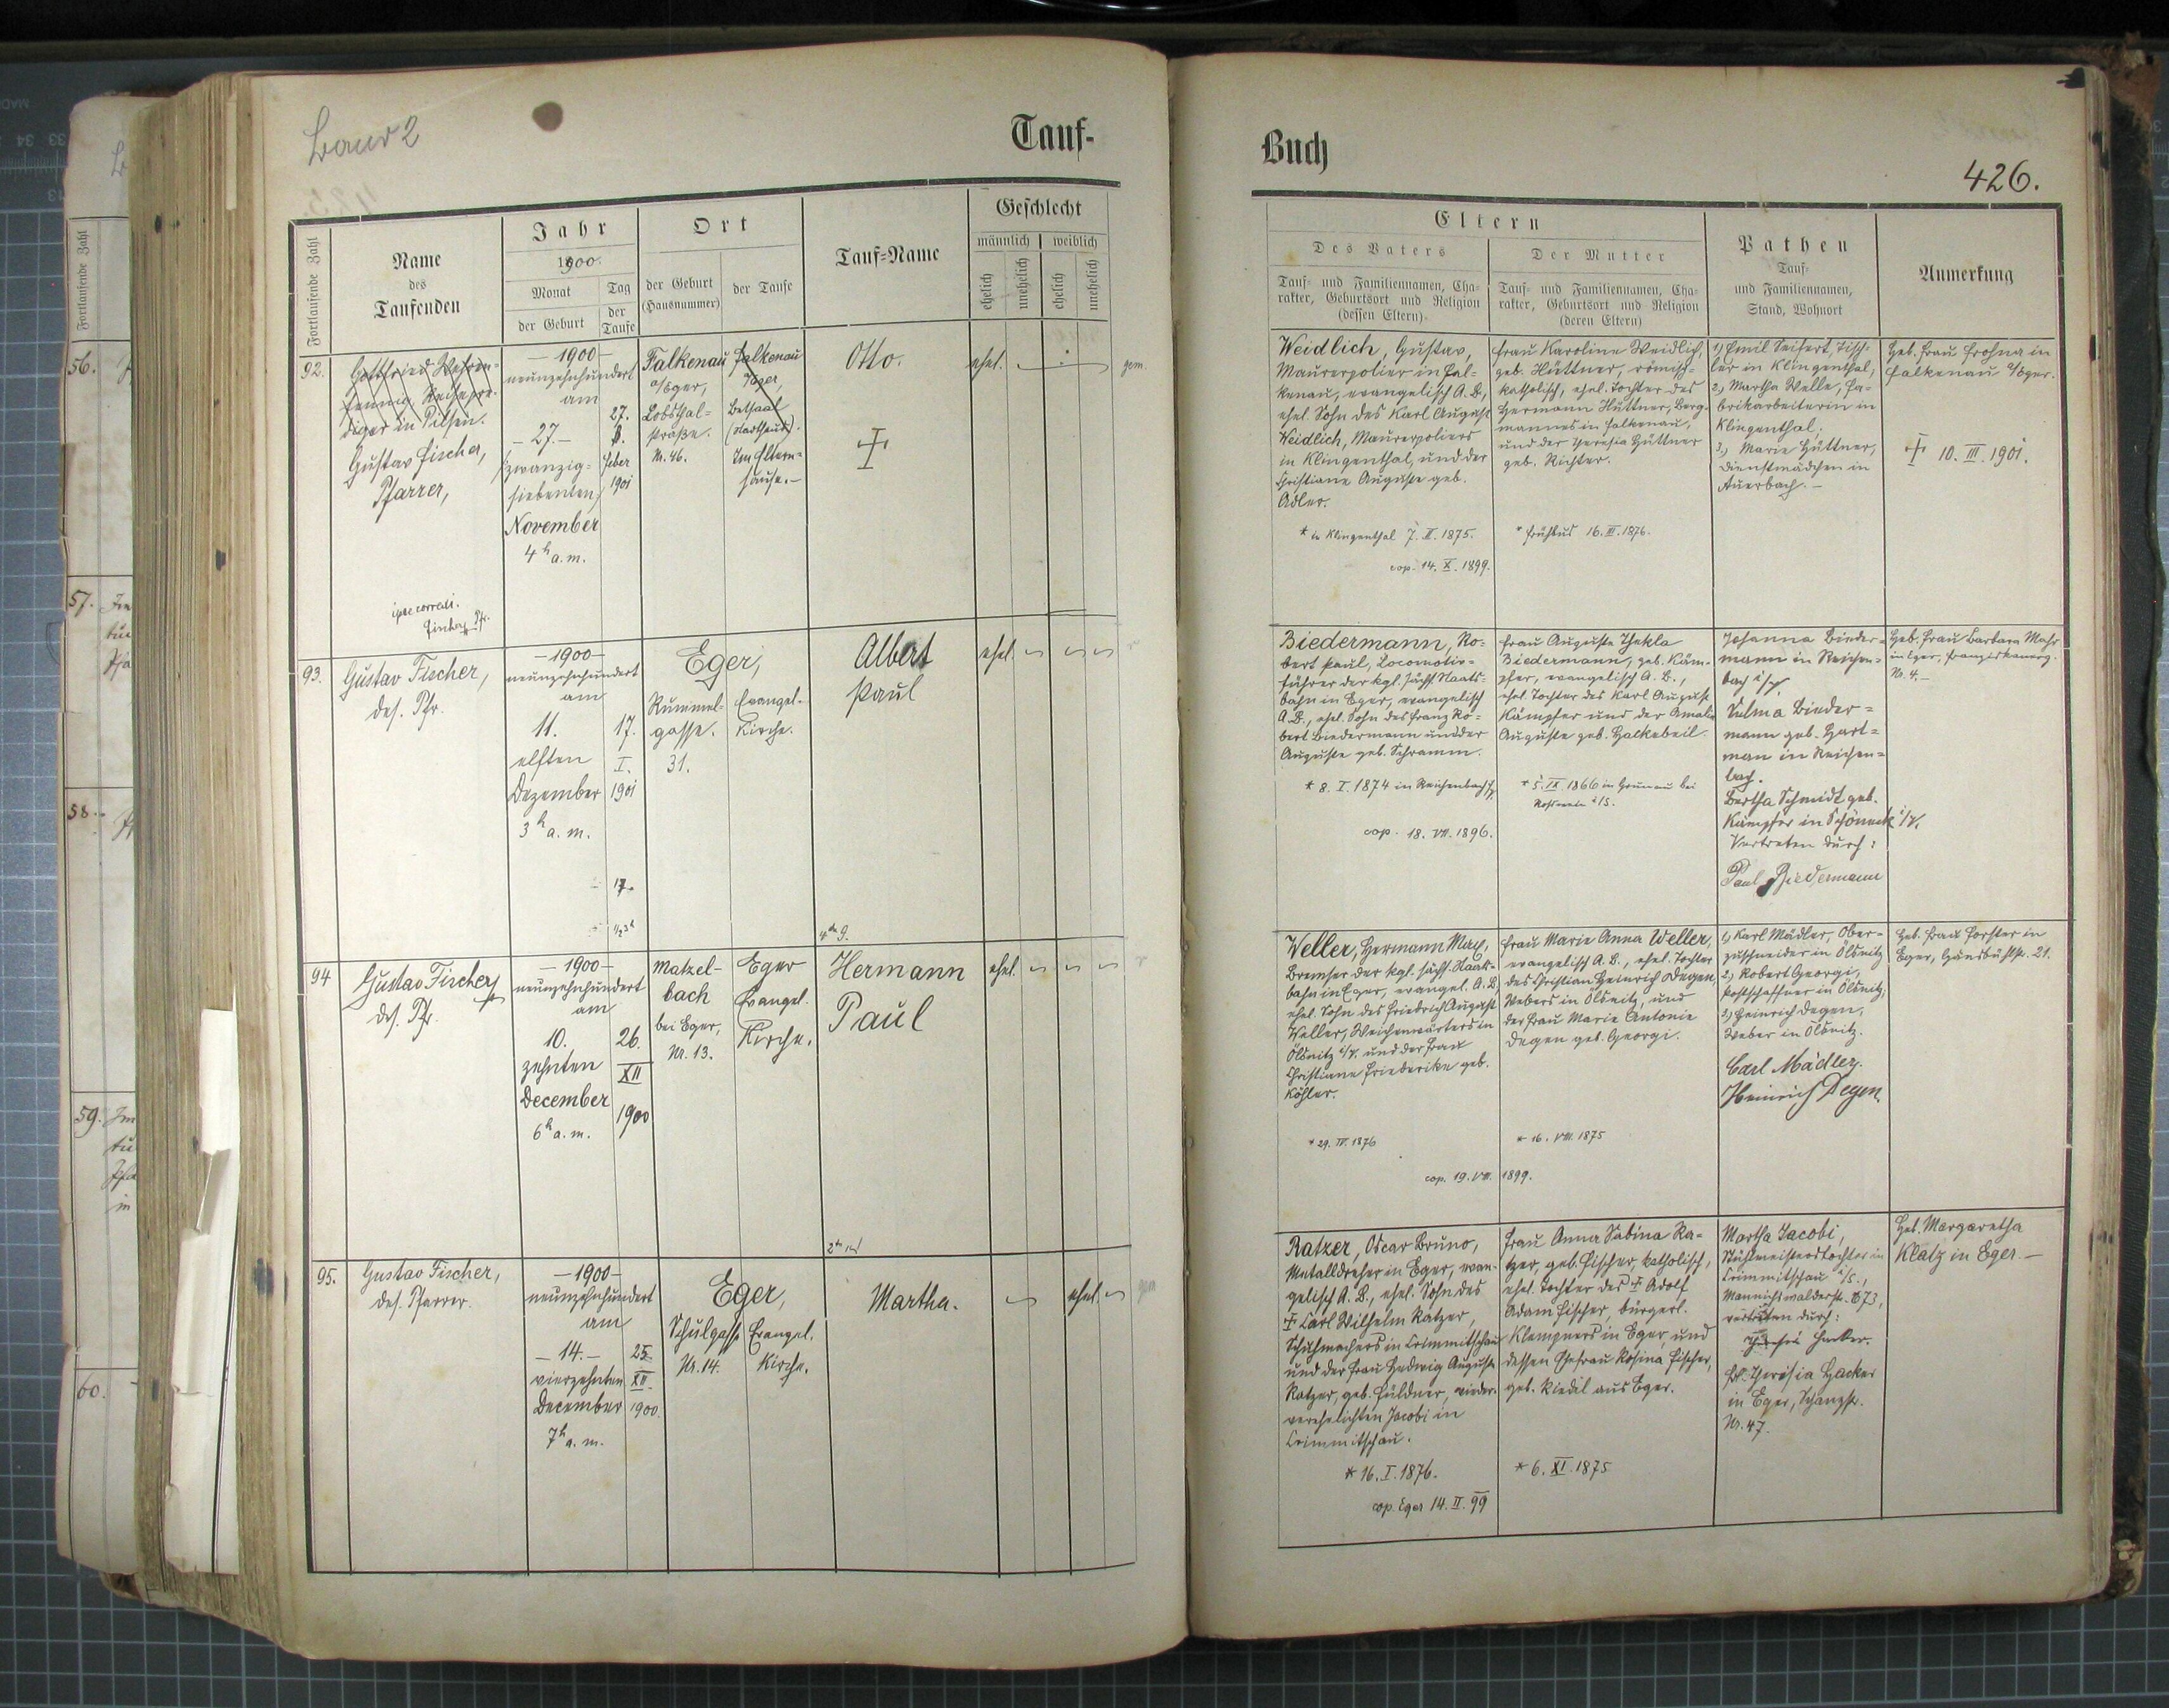 Tauf-
Buch
426.
Fortlaufende Zahl
Name
des
Taufenden
Jahr
1900.
Monat
Tag
der Geburt
der
Taufe
Ort
der Geburt
(Hausnummer)
der Taufe
Tauf-Name
Geschlecht
männlich
weiblich
ehelich
unehelich
ehelich
unehelich
Eltern
Des Vaters
Tauf- und Familiennamen, Cha-
rakter, Geburtsort und Religion
(dessen Eltern)
Der Mutter
Tauf- und Familiennamen, Cha-
rakter, Geburtsort und Religion
(deren Eltern)
Pathen
Tauf-
und Familiennamen,
Stand, Wohnort
Anmerkung
92.
diger in Pilsen.
Gustav Fischer,
Pfarrer,
Fischer Pfr.
– 1900 –
neunzehnhundert
am
– 27. –
(zwanzig-
siebenten)
November
4 h a. m.
27.
Feber
1901
Falkenau
a/Eger,
Lobsthal-
straße.
N. 46.
Falkenau
a/Eger,
Betsaal
(Stadthaus).
Im Eltern-
hause. –
Otto.
ehel.
gem.
Weidlich, Gustav,
Maurerpolier in Fal-
kenau, evangelisch A. B.,
ehel. Sohn des Karl August
Weidlich, Maurerpoliers
in Klingenthal, und der
Christiane Auguste geb.
Adler.
* in Klingenthal 7. II. 1875.
cop. 14. X. 1899.
Frau Karoline Weidlich,
geb. Hüttner, römisch-
katholisch, ehel. Tochter des
Hermann Hüttner, Berg-
mannes in Falkenau,
und der Theresia Hüttner
geb. Richter.
16. III. 1876.
1.) Emil Seifert, Tisch-
ler in Klingenthal,
2.) Martha Welle, Fa-
brikarbeiterin in
Klingenthal.
3.) Marie Hüttner,
Dienstmädchen in
Auerbach. –
Heb. Frau Frohna in
Falkenau a/Eger.
10. III. 1901.
93.
Gustav Fischer,
des. Pfr.
– 1900 –
neunzehnhundert
am
11.
elften
Dezember
3 h a. m.
17.
I.
1901
17.
1/2 3 h
Eger,
Rummel-
gasse.
31.
Evangel.
Kirche.
Albert
Paul
ehel.
Biedermann, Ro-
bert Paul, Locomotiv-
führer der kgl. sächs. Staats-
bahn in Eger, evangelisch
A. B., ehel. Sohn des Franz Ro-
bert Biedermann und der
Auguste geb. Schramm.
* 8. I. 1874 in Reichenbach
cop. 18. VII. 1896.
Frau Auguste Thekla
Biedermann, geb. Käm-
pfer, evangelisch A. B.,
ehel. Tochter des Karl August
Kämpfer und der Amalie
Auguste geb. Halkebeil.
* 5. IX. 1866 in Grunau bei
Rosswein i/S.
Johanna Bieder-
mann in Reichen-
bach i/V.
Vulma Bieder-
mann geb. Hart-
man in Reichen-
bach.
Bertha Schmidt geb.
Kämpfer in Schöneck i/V.
Vertreten durch:
Paul Biedermann
Heb. Frau Barbara Mahr
in Eger,
Nr. 4. –
94
Gustav Fischer,
des. Pfr.
– 1900 –
neunzehnhundert
am
10.
zehnten
December
6 h a. m.
26.
XII
1900
Matzel-
bach
bei Eger,
Nr. 13.
Eger
Evangel.
Kirche.
Hermann
Paul
ehel.
Weller, Hermann Max,
Bremser der kgl. sächs. Staats-
bahn in Eger, evangel. A. B.,
ehel. Sohn des Friedrich August
Weller, Weichenwärters in
Ölsnitz i/V. und der Frau
Christiane Friederike geb.
Köhler.
* 29. IV. 1876
cop. 19. VIII. 1899.
Frau Marie Anna Weller,
evangelisch A. B., ehel. Tochter
des Christian Heinrich Degen,
Webers in Ölsnitz, und
der Frau Marie Antonie
Degen geb. Georgi.
* 16. VIII. 1875
1.) Karl Mädler, Ober-
zuschneider in Ölsnitz
2.) Robert Georgi,
Postschaffner in Ölsnitz,
3.) Heinrich Degen,
Weber in Ölsnitz.
Carl Mädler.
Heinrich Degen.
Heb. Frau Forster in
Eger, 21.
95.
Gustav Fischer,
des. Pfarrer.
– 1900 –
neunzehnhundert
am
– 14. –
vierzehnten
December
7 h a. m.
25.
XII.
1900.
Eger,
Schulgasse
Nr. 14.
Evangel.
Kirche.
Martha.
ehel.
Ratzer, Oscar Bruno,
Metalldreher in Eger, evan-
gelisch A. B., ehel. Sohn des
† Carl Wilhelm Ratzer,
Schuhmachers in Crimmitschau
und der Frau Hedwig Auguste
Ratzer, geb. Füldner, wieder-
verehelichten Jacobi in
Crimmitschau.
* 16. I. 1876.
cop. Eger 14. II. 99
Frau Anna Sabina Ra-
tzer, geb. Fischer, katholisch,
ehel. Tochter des † Adolf
Adam Fischer, bürgerl.
Klempners in Eger, und
dessen Ehefrau Rosina Fischer,
geb. Riedil aus Eger.
* 6. XI. 1875
Martha Jacobi,
Stuhlmeisterstochter in
Crimmitschau i/S.,
Mannichswalderstr. 73,
vertreten durch:
Theresia Hacker.
Frl. Theresia Hacker
in Eger, Schanzstr.
Nr. 47.
Heb. Margaretha
Klatz in Eger. –
56.
57.
58.
59.
60.